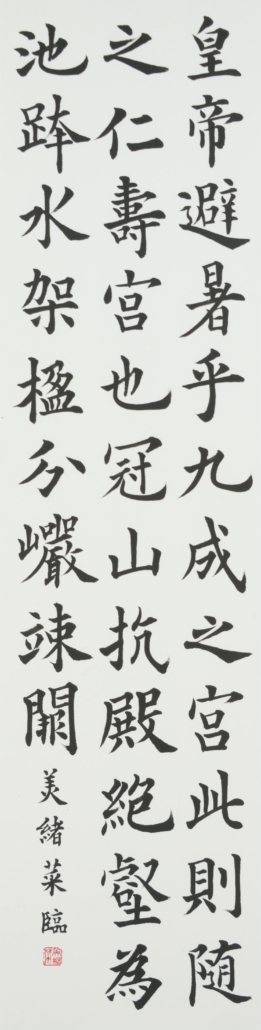 皇帝避暑乎九成之宮此則隨
之仁壽宮也冠山抗殿絕壑為
池跨水架楹分巖竦闕
美緒菜臨